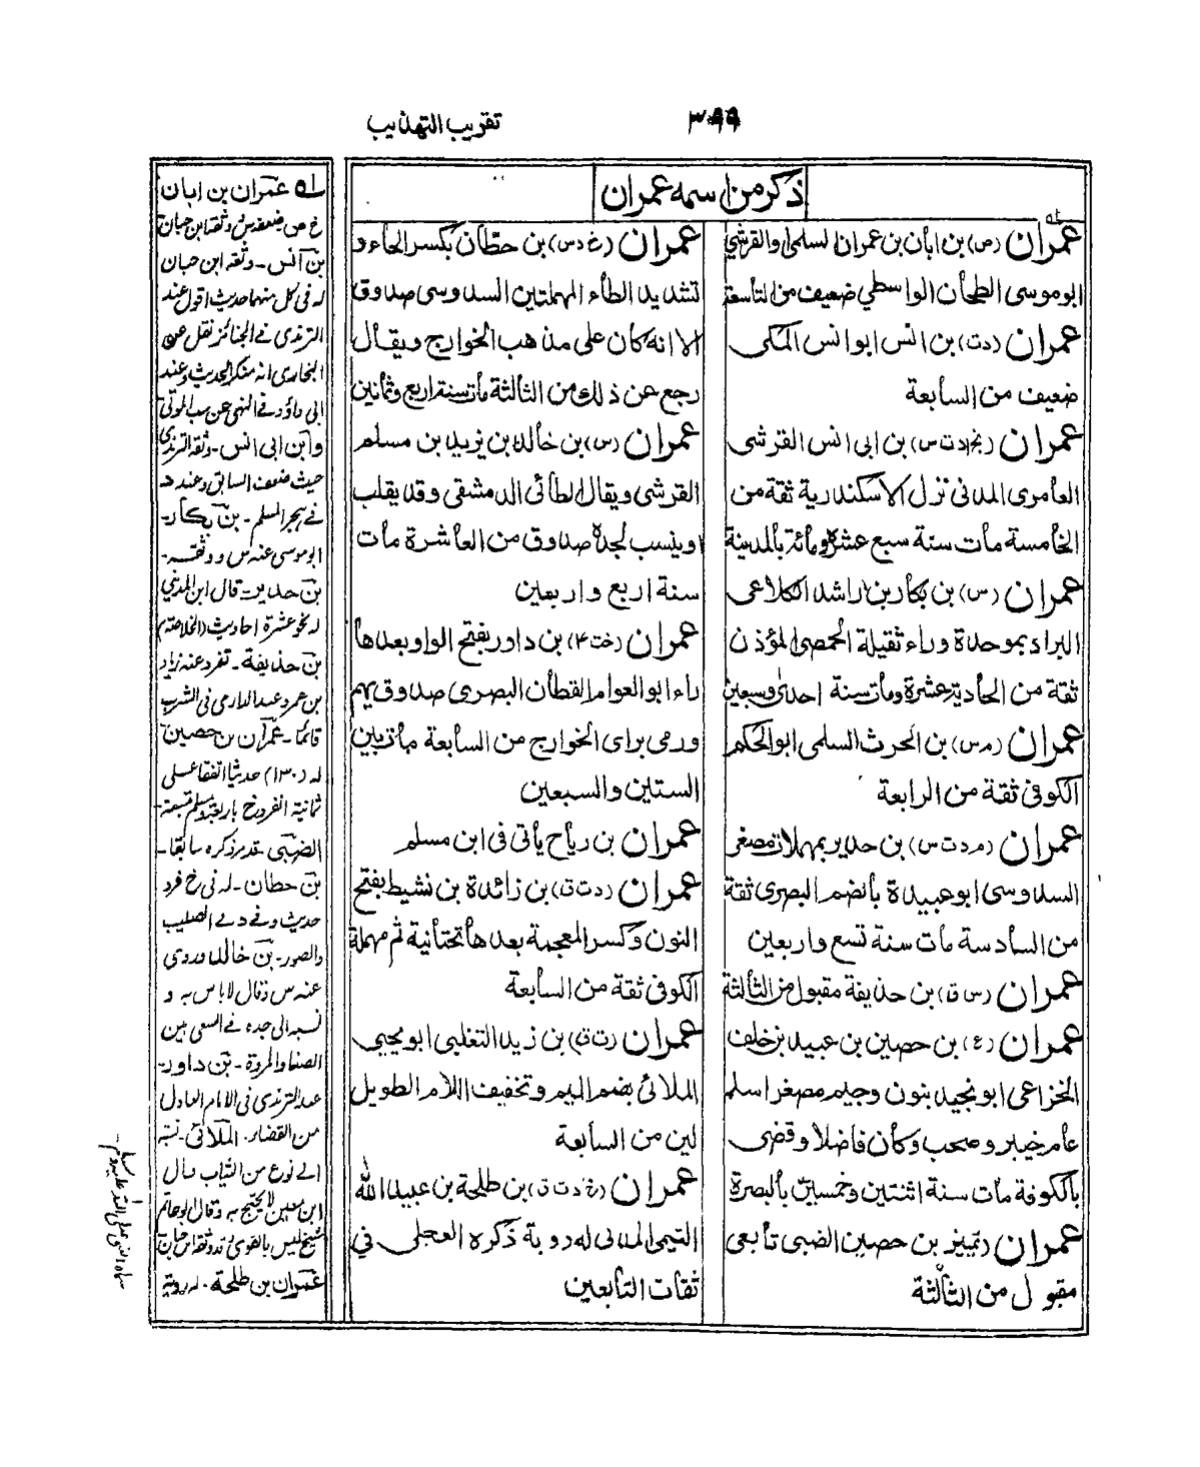 تقريب التهذيب
٣٩٩
ذكر من اسمه عمران
عمران (س) بن ابأن بن عمران السلمى او القرشي
ابو موسى الطحأن الواسطي ضعيف من التأسعة
عمران (دت) بن انس ابو انس المكى
ضعيف من السأبعة
عمران (بخ د ت س) بن ابى انس القرشى
العأمرى المدنى نزل الاسكندرية ثقة من
الخأمسة مأت سنة سبع عشرة ومأئة بألمدينة
عمران (س) بن بكأر بن راشد الكلاعى
البراد بموحدة وراء ثقيلة الحمصى المؤذن
ثقة من الحأدية عشرة ومأت سنة احدى وسبعين
عمران (م س) بن الحرث السلمى ابو الحكم
الكوفى ثقة من الرابعة
عمران (م د ت س) بن حدير بمهملات مصغر
السدوسى ابو عبيدة بألضم البصرى ثقة
من السأدسة مأت سنة تسع واربعين
عمران (س ق) بن حذيفة مقبول من الثألثة
عمران (ع) بن حصين بن عبيد بن خلف
الخزاعى ابو نجيد بنون وجيم مصغر اسلم
عأم خيبر وصحب وكأن فأضلا وقضى
بألكوفة مأت سنة اثنتين وخمسين بألبصرة
عمران (تمييز) بن حصين الضبى تأبعى
مقبول من الثألثة
عمران (خ د س) بن حطّأن بكسر الحأء و
تشديد الطأء المهملتين السدوسى صدوق
الا انه كأن على مذهب الخوارج ويقأل
رجع عن ذلك من الثألثة مأت سنة اربع وثمأنين
عمران (س) بن خألد بن يزيد بن مسلم
القرشى ويقأل الطأئى الدمشقى وقد يقلب
او ينسب لجده صدوق من العأشرة مأت
سنة اربع واربعين
عمران (خت ۴) بن داور بفتح الواو بعدها
راء ابو العوام القطأن البصرى صدوق يهم
ورمى براى الخوارج من السأبعة مأت بين
الستين والسبعين
عمران بن ريأح يأتى فى ابن مسلم
عمران (دت ق) بن زائدة بن نشيط بفتح
النون وكسر المعجمة بعدهأ تحتأنية ثم مهملة
الكوفى ثقة من السأبعة
عمران (ت ق) بن زيد التغلبى ابو يحيى
الملائى بضم الميم وتخفيف اللام الطويل
لين من السأبعة
عمران (بخ د ت ق) بن طلحة بن عبيد الله
التيمى المدنى له روية ذكره العجلى في
ثقأت التأبعين
له عمران بن ابان
خ ص ضعفه س وثقه ابن حبان
بن انس ـ وثقه ابن حبان
له فى كل منهما حديث اقول عند
الترمذى فے الجنائز نقل عن
البخارى انه منكر الحديث وعند
ابى داؤد فے النهى عن سب الموتى
وابن ابى انس ـ وثقه الترمذى
حيث ضعف السابق وعند د
فے هجر المسلم ـ بن بكار ـ
ابو موسى عنه س ووثقه ـ
بن حدير ـ قال ابن المدينى
له نحو عشرة احاديث (الخلاصة)
بن حذيفة ـ تفرد عنه زياد
بن عمرو عند الدارمى فى الشرب
قائما ـ عمران بن حصين
له (۱۳۰) حديثا اتفقا على
ثمانية انفرد خ باربعة ومسلم بتسعة ـ
الضبى ـ قد مر ذكره سابقا ـ
بن حطان ـ له فى خ فرد
حديث وفے د فے الصليب
والصور ـ بن خالد ـ روى
عنه س وقال لا باس به و
نسبه الى جده فے السعى بين
الصفا والمروة ـ بن داور ـ
عند الترمذى فى الامام العادل
من القضاء ـ الملائى ـ نسبة
الے نوع من الثياب قال
ابن معين لا يحتج به وقال ابو حاتم
شيخ ليس بالقوى وقد وثقه ابن حبان
عمران بن طلحة ـ له روية
سماه النبى صلى الله عليه وسلم ـ